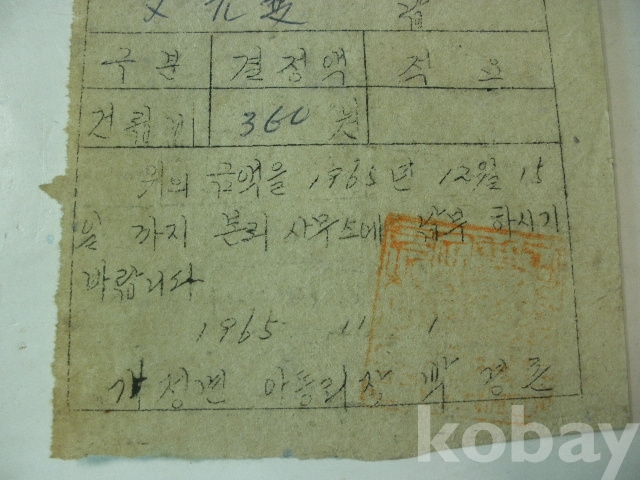 文 元
구분 결정액 적요
건립비 360 원
위의 금액을 1965년 12월 15
일 까지 본리 사무소에 납부 하시기
바랍니다
1965 11. 1
면 아동리장 박
kobay